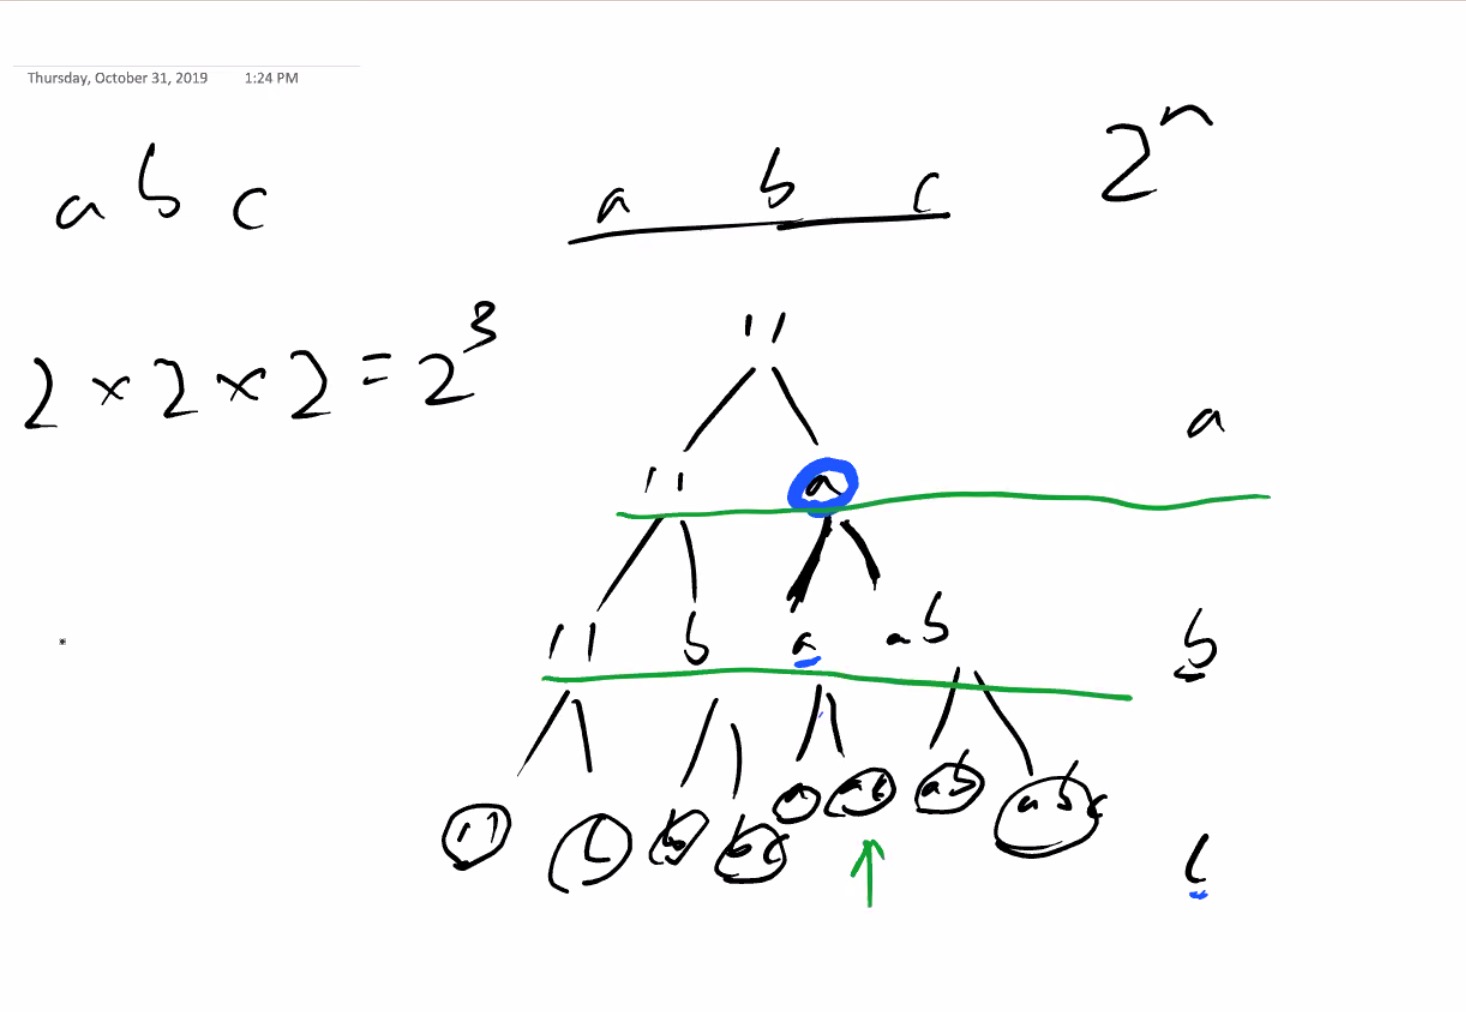 Thursday, October 31, 2019 1:24 PM
a b c
a b c
2ⁿ
2 × 2 × 2 = 2³
''
'' a
a
'' b a ab
b
'' c b bc a ac ab abc
c